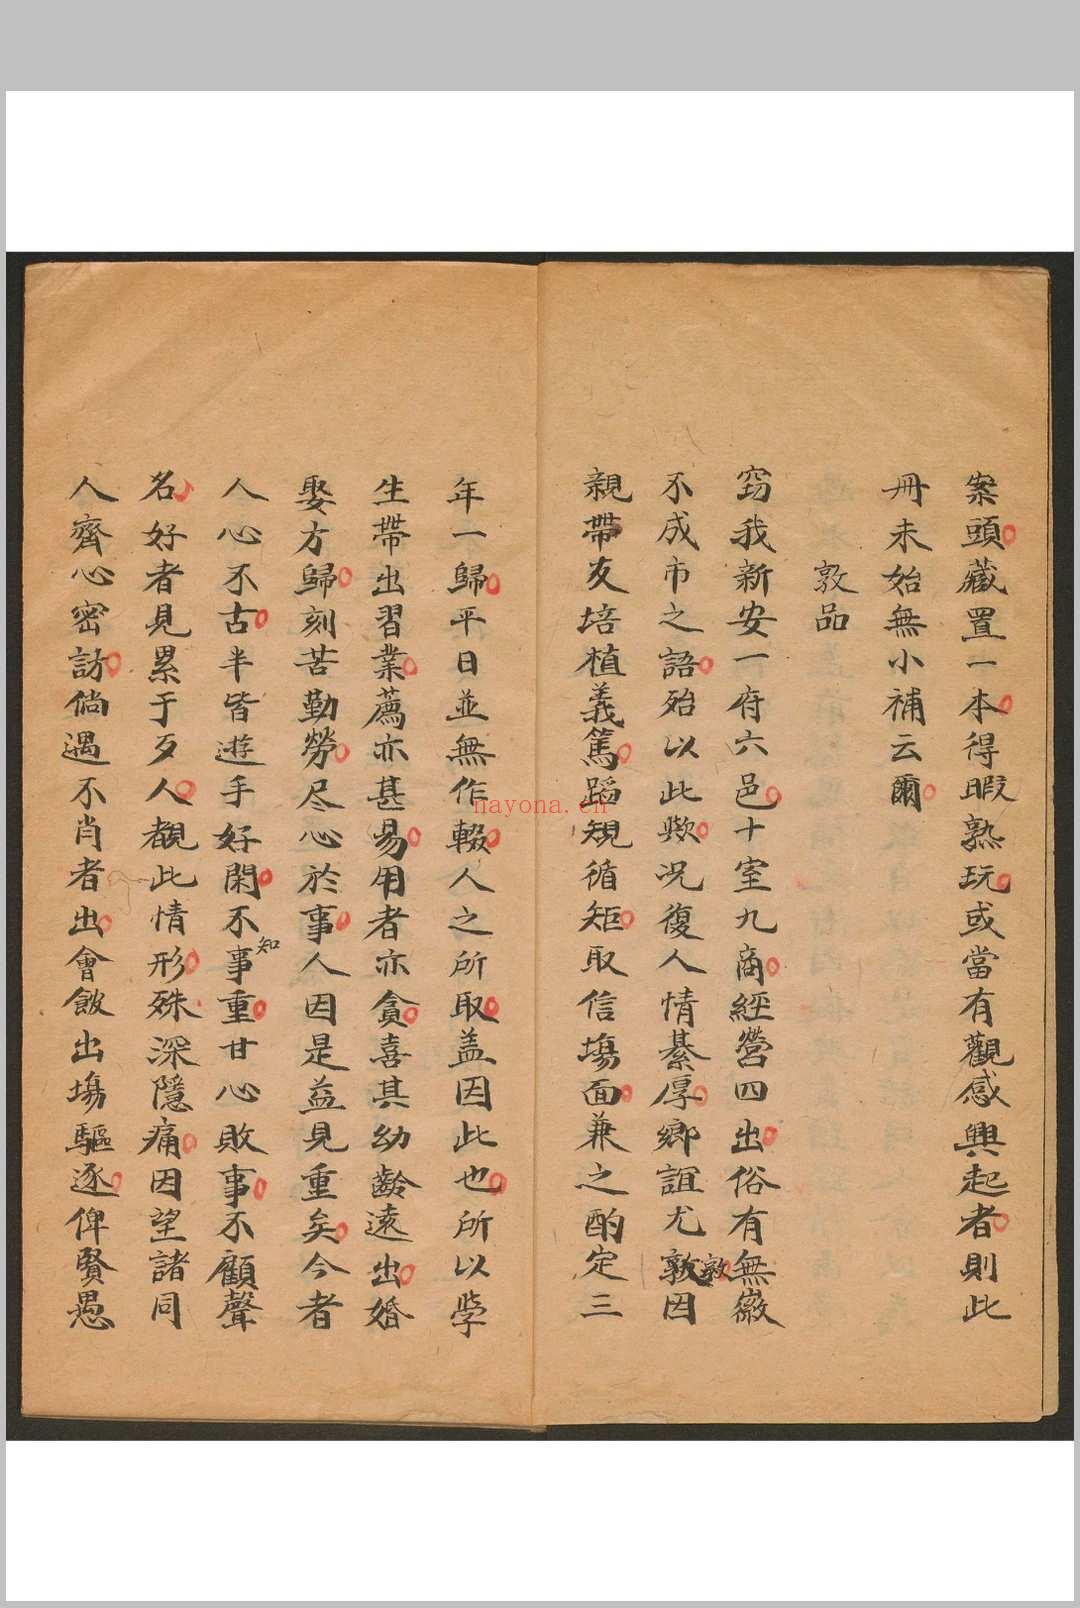 案頭藏置一本得暇熟玩或當有觀感興起者則此
冊未始無小補云爾
敦品
窃我新安一府六邑十室九商經營四出俗有無徽
不成市之語殆以此歟况復人情綦厚鄉誼尤敦敦因
親帶友培植義篤蹈規循矩取信塲面兼之酌定三
年一歸平日並無作輟人之所取盖因此也所以學
生帶出習業薦亦甚易用者亦貪喜其幼齡遠出婚
娶方歸刻苦勤勞尽心於事人因是益見重矣今者
人心不古半皆遊手好閑不事知重甘心敗事不顧聲
名好者見累于歹人覩此情形殊深隱痛因望諸同
人齊心密訪倘遇不肖者出會飲出塲驅逐俾賢愚
nayona.cn